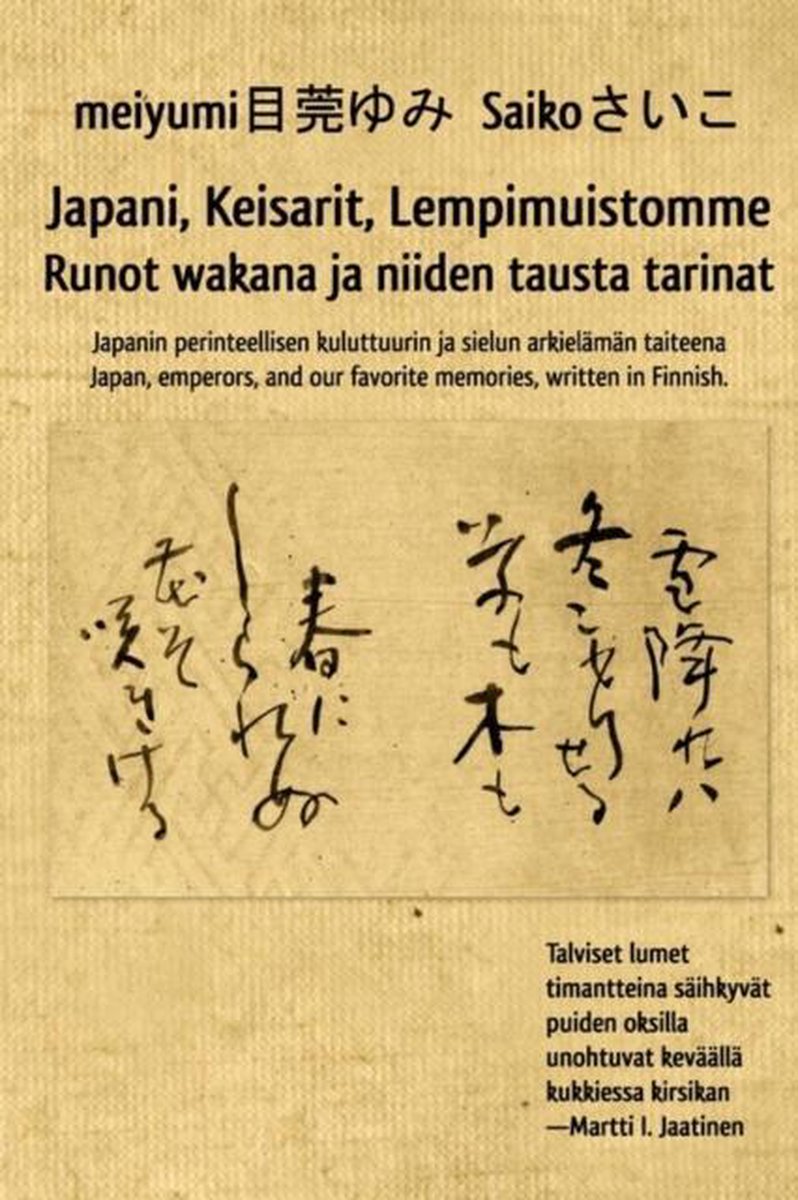 meiyumi目莞ゆみ Saikoさいこ
Japani, Keisarit, Lempimuistomme
Runot wakana ja niiden tausta tarinat
Japanin perinteellisen kuluttuurin ja sielun arkielämän taiteena
Japan, emperors, and our favorite memories, written in Finnish.
雪降れハ
冬こもりせる
草も木も
春に
しられぬ
花そ
咲きける
Talviset lumet
timantteina säihkyvät
puiden oksilla
unohtuvat keväällä
kukkiessa kirsikan
—Martti I. Jaatinen